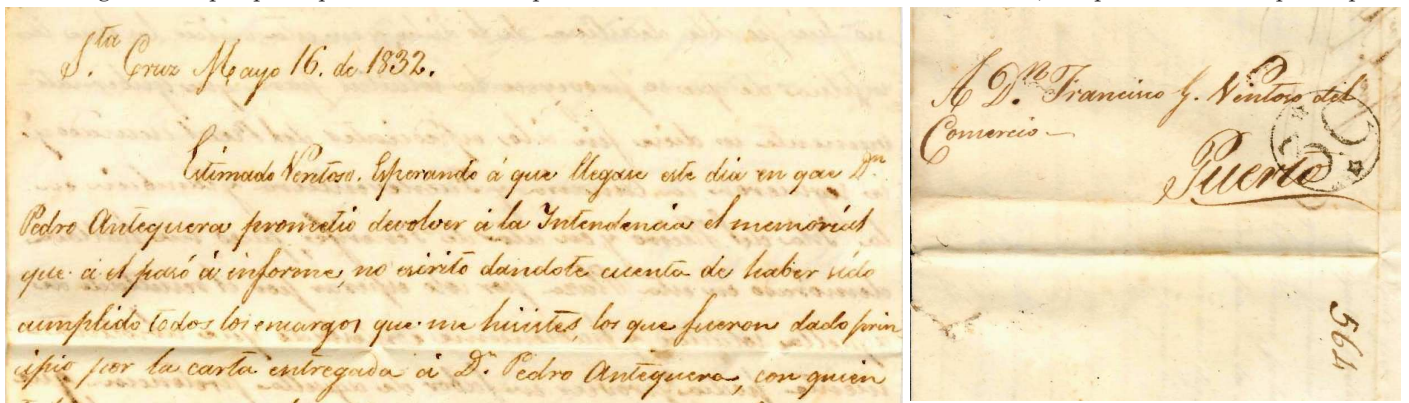 Sta Cruz Mayo 16. de 1832.
Estimado Ventoso. Esperando á que llegase este dia en que Dn
Pedro Antequera prometio devolver á la Intendencia el memorial
que a el pasó á informe, no escrito dandote cuenta de haber sido
cumplido todos los encargos que me hicistes, los que fueron dado prin
cipio por la carta entregada á Dn Pedro Antequera, con quien
A Dn Francisco G. Ventoso del
Comercio
Puerto
561